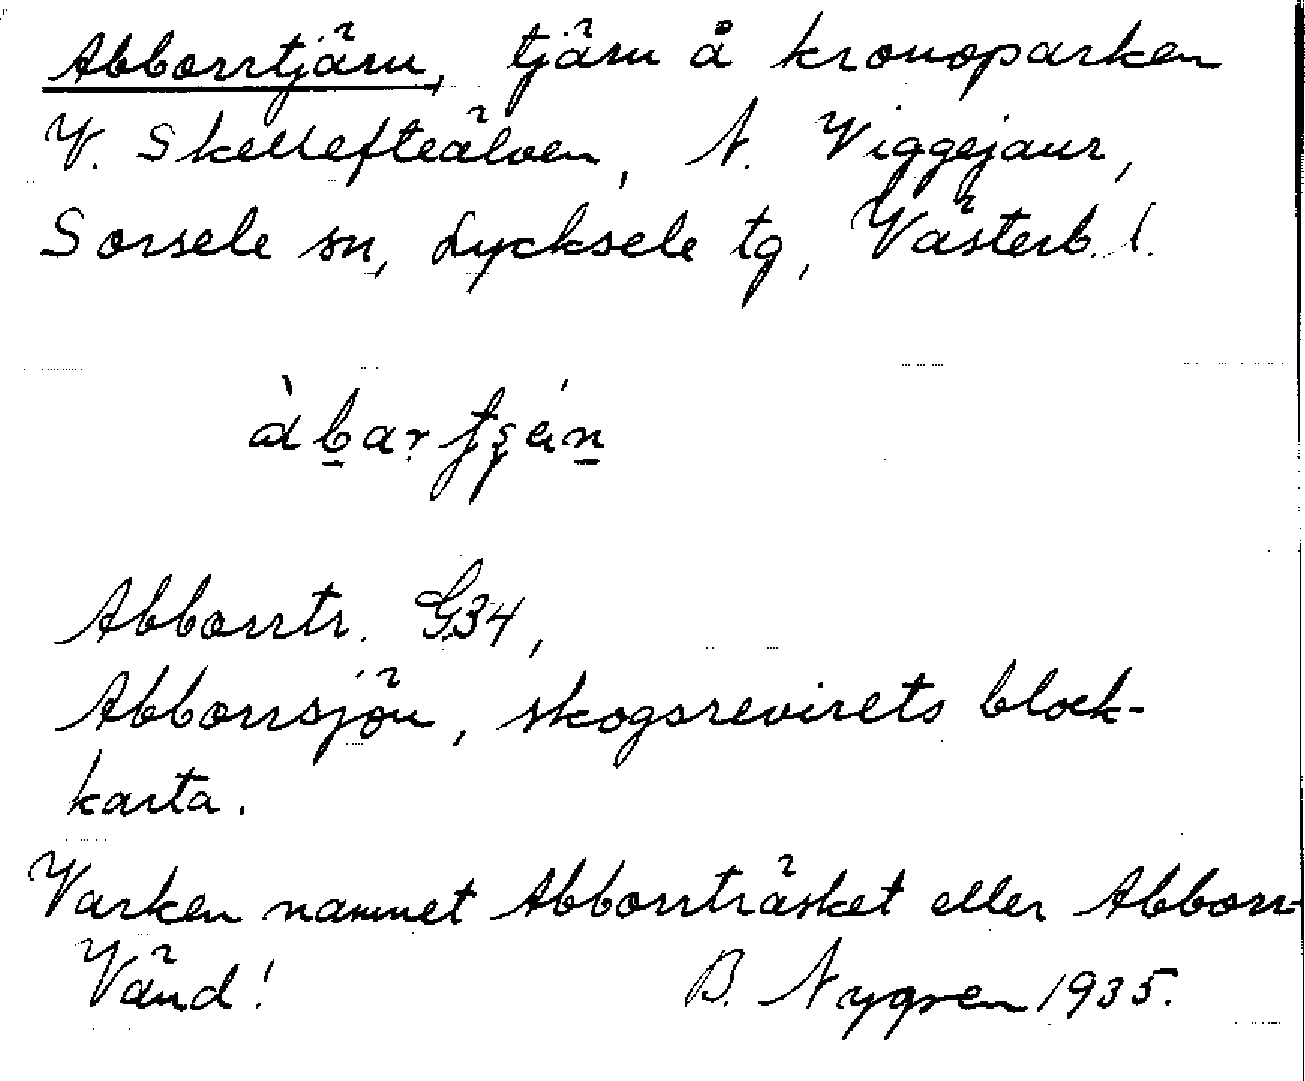 Abborrtjärn, tjärn å kronoparken
V. Skellefteälven, N. Viggejaur,
Sorsele sn, Lycksele tg, Västerb. l.
Abborrtr. G34,
Abborrsjön, skogsrevirets block-
karta.
Varken namnet Abborrträsket eller Abborr-
Vänd! B. Nygren 1935.